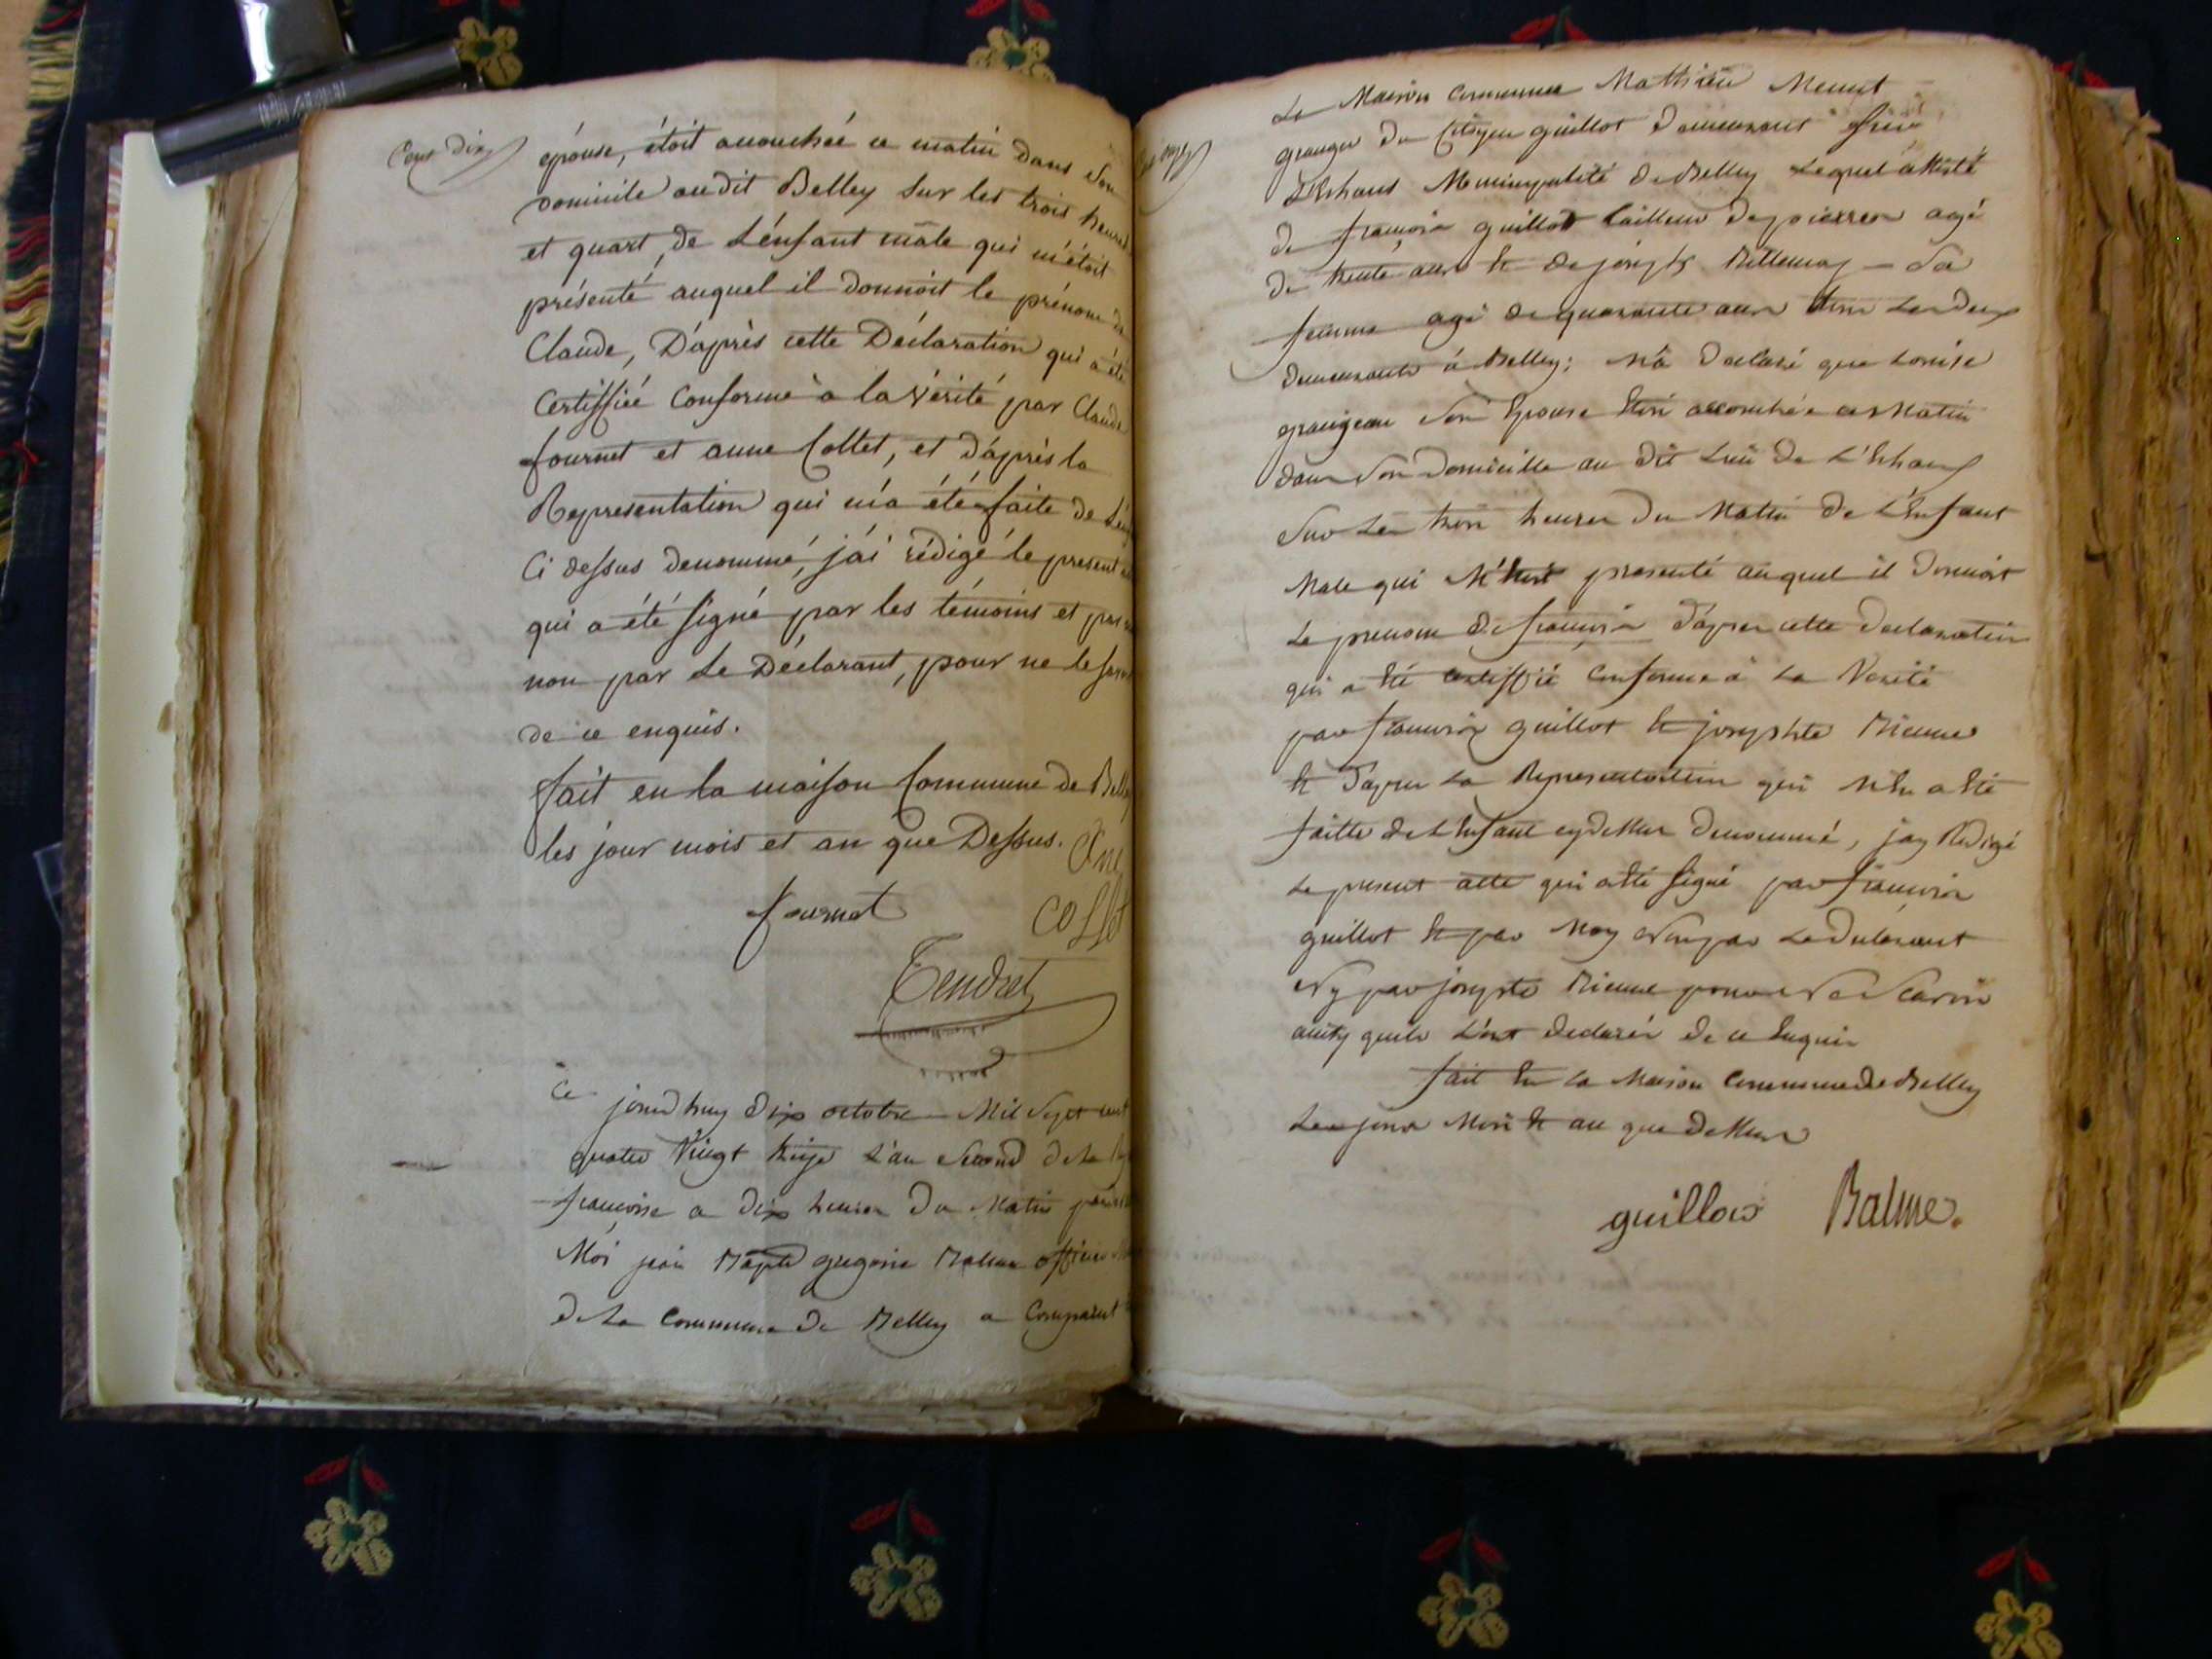 Cent dix
épouse, étoit acouchéé ce matin dans son
domicile audit Belley sur les trois heures
et quart, de L'énfant mâle qui m'étoit
présenté auquel il donnoit le prénom de
Claude, D'áprès cette Déclaration qui a été
Certiffiéé Conforme à la vérité par Claude
fournet et anne Collet, et d'áprès la
Représentation qui m'a été faite de
Ci dessus denommé, j'ái rédigé le present
qui a été signé par les témoins et par
non par Le Déclarant, pour ne le
de ce enquis.
fait en la maison Commune de
les jour mois et an que Dessus.
fournet
Collet
Tendret
Ce jourdhuy dix octobre Mil Sept cent
quatre Vingt treize L'an Second de la
françoise a dix heures Du Matin
Moi jean Bapte gregoire Balme officier
de La Commune de Belley a Comparut
La Maison Commune Mathieu
granger du Citoyen guillot demeurant
Municipalité de Belley Lequel
de françois guillot tailleur de pierres agé
de trente ans et de
femme agé de quarante ans tous Les deux
demeurants á Belley; M'a declaré que Louise
son Epouse Etoit accouchée ce Matin
dans Son Domicille au dit Lieu de
Sur Les trois heures du Matin de L'Enfant
Male qui M'Etoit presenté auquel il donnoit
Le prenom de françois D'apres cette declaration
qui a Eté certiffié Conforme à La Verité
par françois guillot Et
Et D'apres La Representation qui M'En a Eté
faitte de L'Enfant cy dessus denommé, jay Redigé
Le present acte qui a Eté signé par françois
guillot Et par Moy Non par Le Declarant
Ny par
quils L'ont declarés de ce Enquis
fait En La Maison Commune de Belley
Les jour Mois Et an que dessus
guillot Balme.